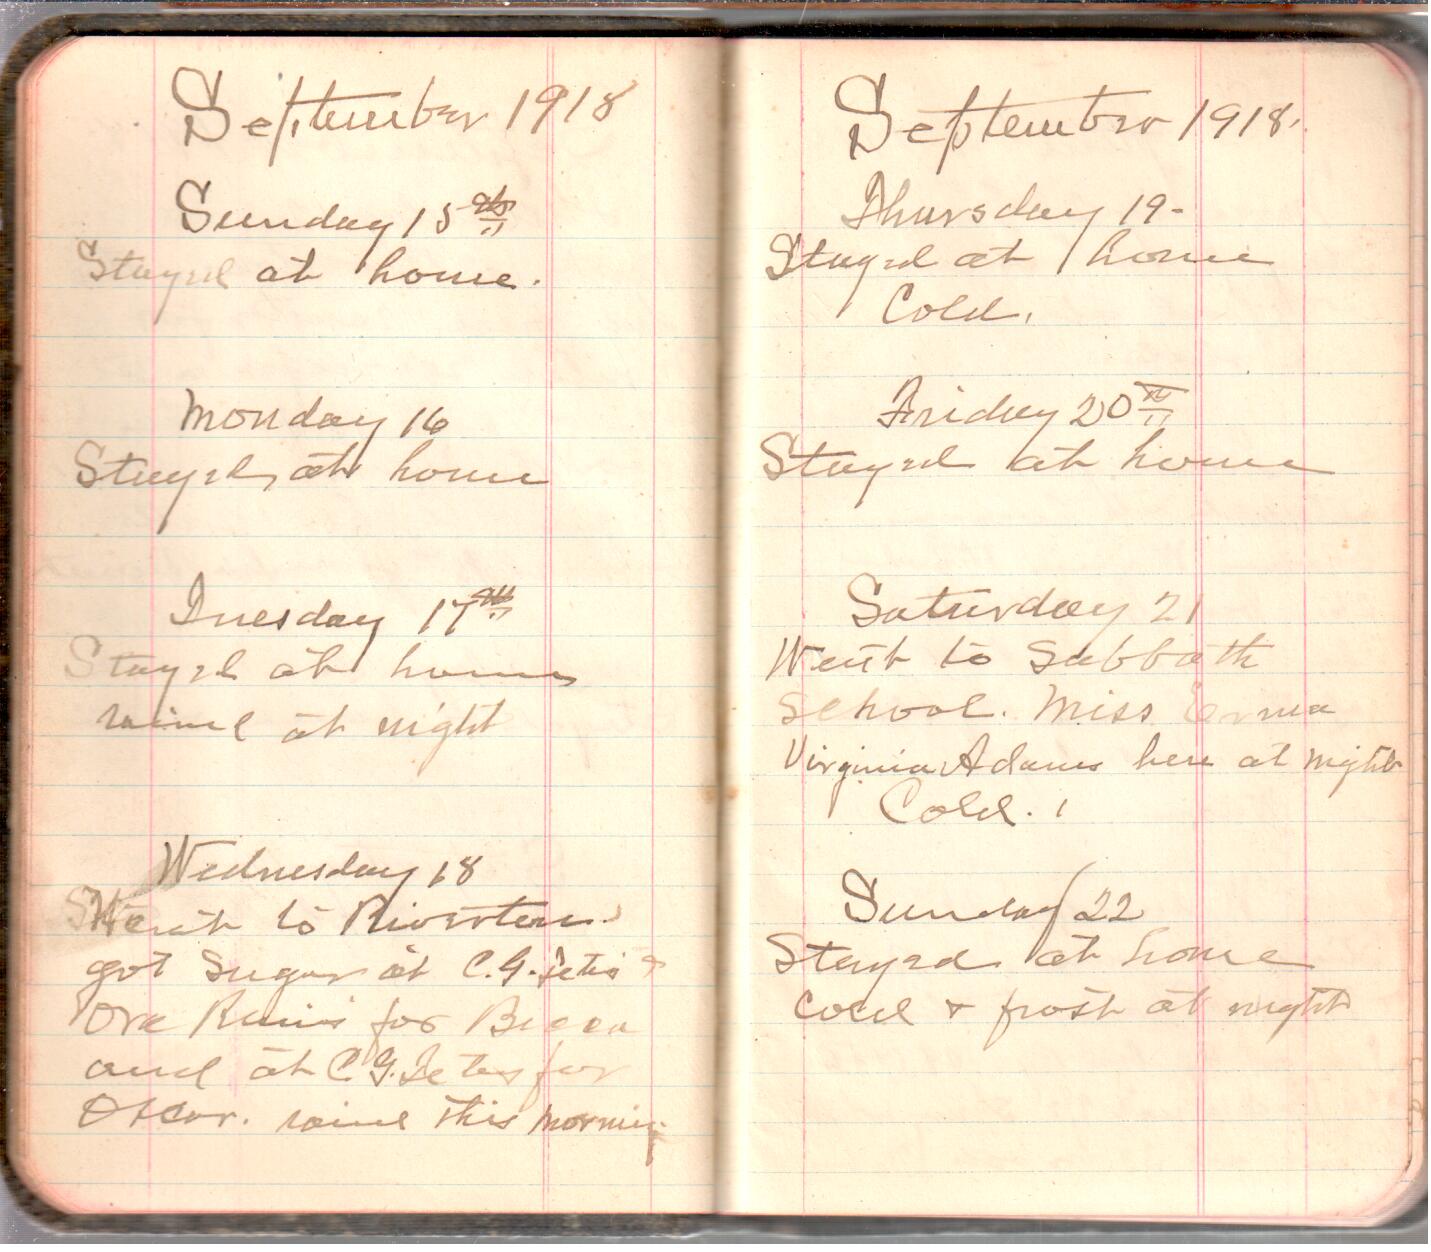 September 1918
Sunday 15th
Stayed at home.
Monday 16
Stayed at home
Tuesday 17th
Stayed at home
rained at night
Wednesday 18
Went to Riverton.
got Sugar at C.G.
Ora for
and at C.G. for
Oscar. rained this morning
September 1918.
Thursday 19-
Stayed at home
Cold.
Friday 20th
Stayed at home
Saturday 21
Went to Sabbath
School. Miss Erma
Virginia Adams here at night
Cold.
Sunday 22
Stayed at home
cold & frost at night